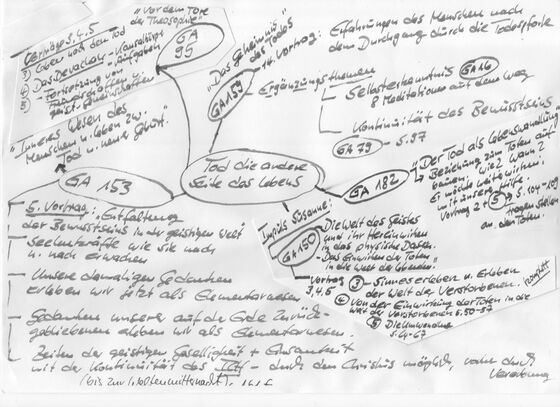 "Vor dem Tore
der Theosophie"
GA
95
Vorträge 3, 4, 5
③ Leben nach dem Tod
④ Das Devachan
⑤ - Fortsetzung von
Freundschaften u.
geist. Gemeinschaften
"Das Geheimnis
des Todes"
GA 159
14. Vortrag: Erfahrungen des Menschen nach
dem Durchgang durch die Todespforte
Ergänzungsthemen
Selbsterkenntnis GA 16
8 Meditationen auf dem Weg
Kontinuität des Bewusstseins
GA 79 - S. 97
"Inneres Wesen des
Menschen u. Leben zw.
Tod u. neuer Geburt."
GA 153
Tod die andere
Seite des Lebens
GA 182
"Der Tod als Lebenswandlung"
Beziehung zu Toten auf-
bauen: wie? Wann?
mit unserer Hilfe.
Vortrag 2 + ⑤
Fragen stellen
an den Toten.
5. Vortrag: Entfaltung
des Bewusstseins in der geistigen Welt
Seelenkräfte wie sie nach
u. nach erwachen
Unsere damaligen Gedanken
erleben wir jetzt als Elementarwesen
Gedanken unserer auf der Erde zurück-
gebliebenen erleben wir als Elementarwesen.
Zeiten der geistigen Geselligkeit + Einsamkeit
mit der Kontinuität des ICH - durch den Christus möglich, vorher durch
Vererbung
(bis zur Weltenmitternacht).
Impuls Susanne:
GA 150
Die Welt des Geistes
und ihr Hereinwirken
in das physische Dasein.
- Das Einwirken der Toten
in die Welt der Lebenen.
Vortrag
3, 4, 5
③ - Sinneserleben u. Erleben
der Welt der Verstorbenen.
④ Von der Einwirkung der Toten in die
Welt der Verstorbenen S. 50-57
⑤
S. 64-67